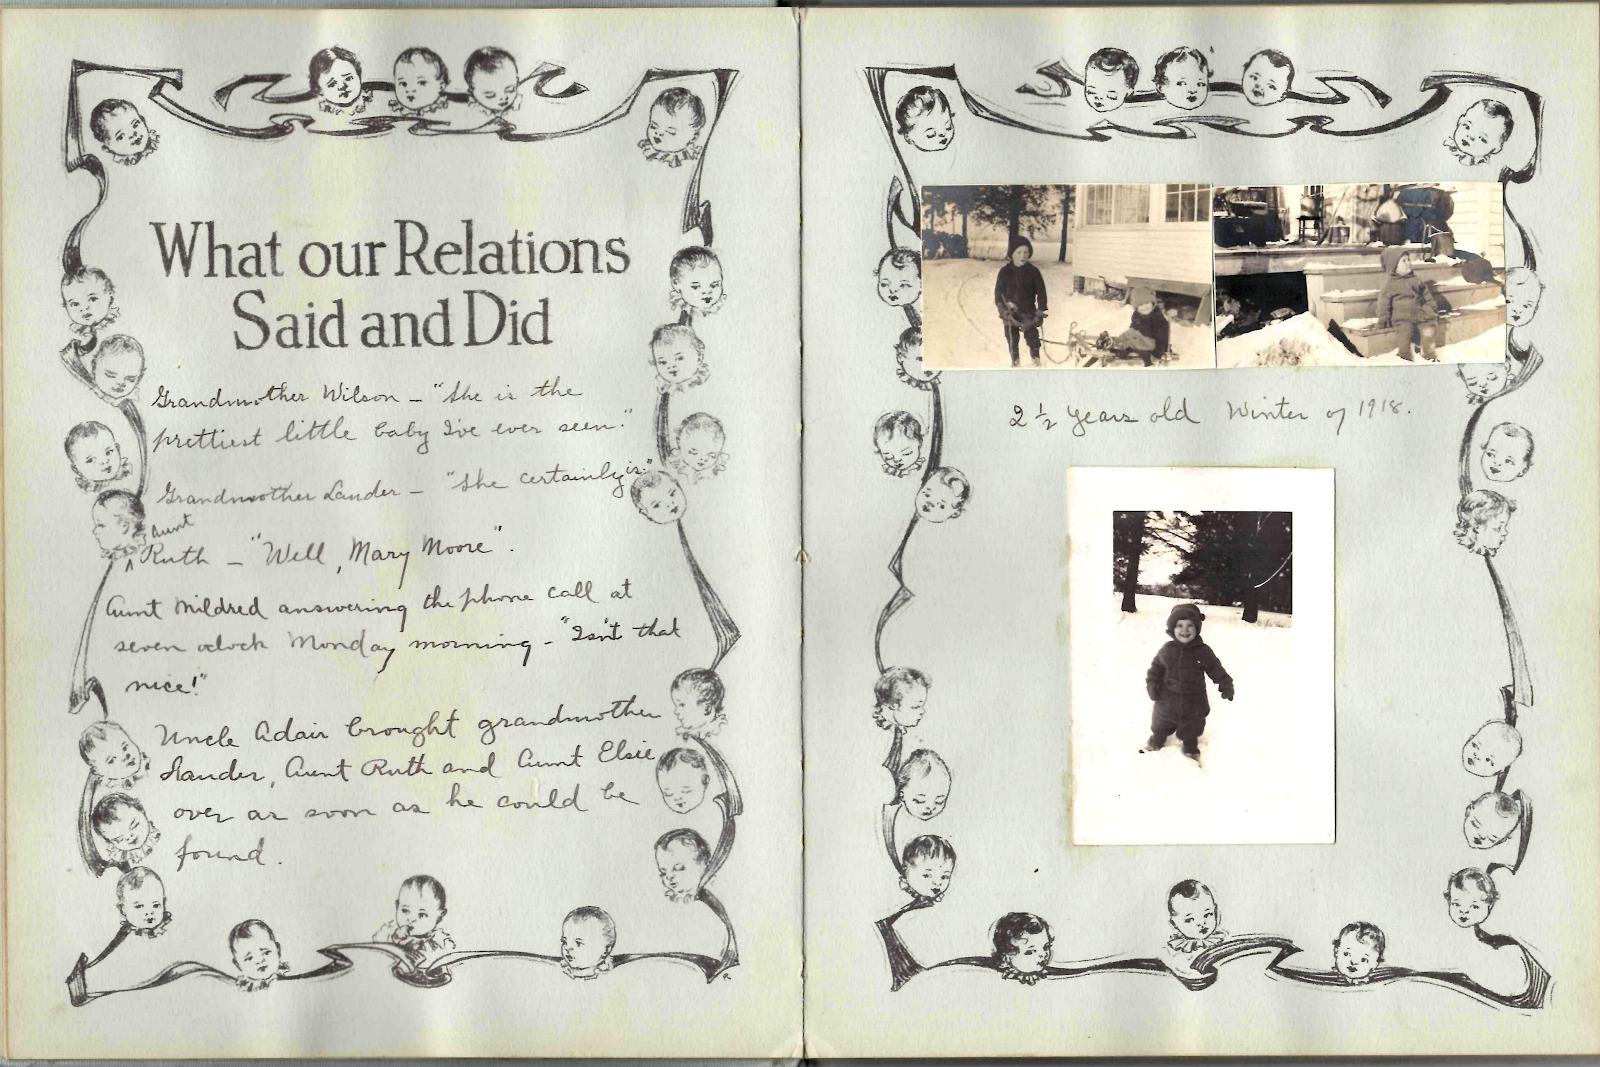 What our Relations
Said and Did
Grandmother Wilson – "She is the
prettiest little baby I've ever seen."
Grandmother Lauder – "She certainly is."
Aunt
^ Ruth – "Well, Mary Moore".
Aunt Mildred answering the phone call at
seven oclock Monday morning – "Isn't that
nice!"
Uncle Adair brought grandmother
Lauder, Aunt Ruth and Aunt Elsie
over as soon as he could be
found.
2 ½ years old Winter of 1918.